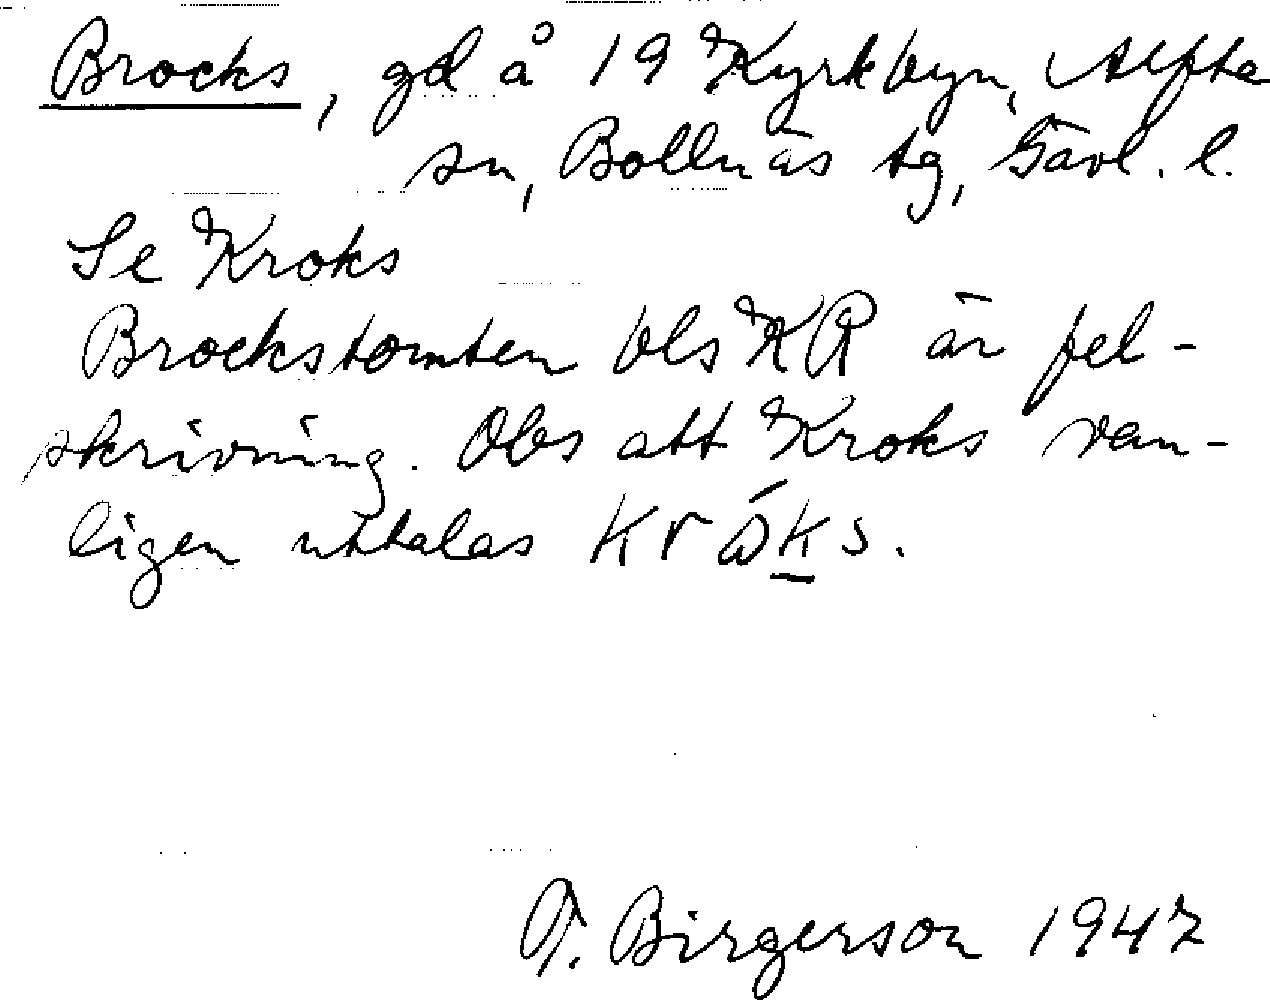 Brocks, gd å 19 Kyrkbyn, Alfta
sn, Bollnäs tg, Gävl. l.
Se Kroks
Brockstomten bls KR är fel-
skrivning. Obs att Kroks van-
ligen uttalas
. Birgerson 1947